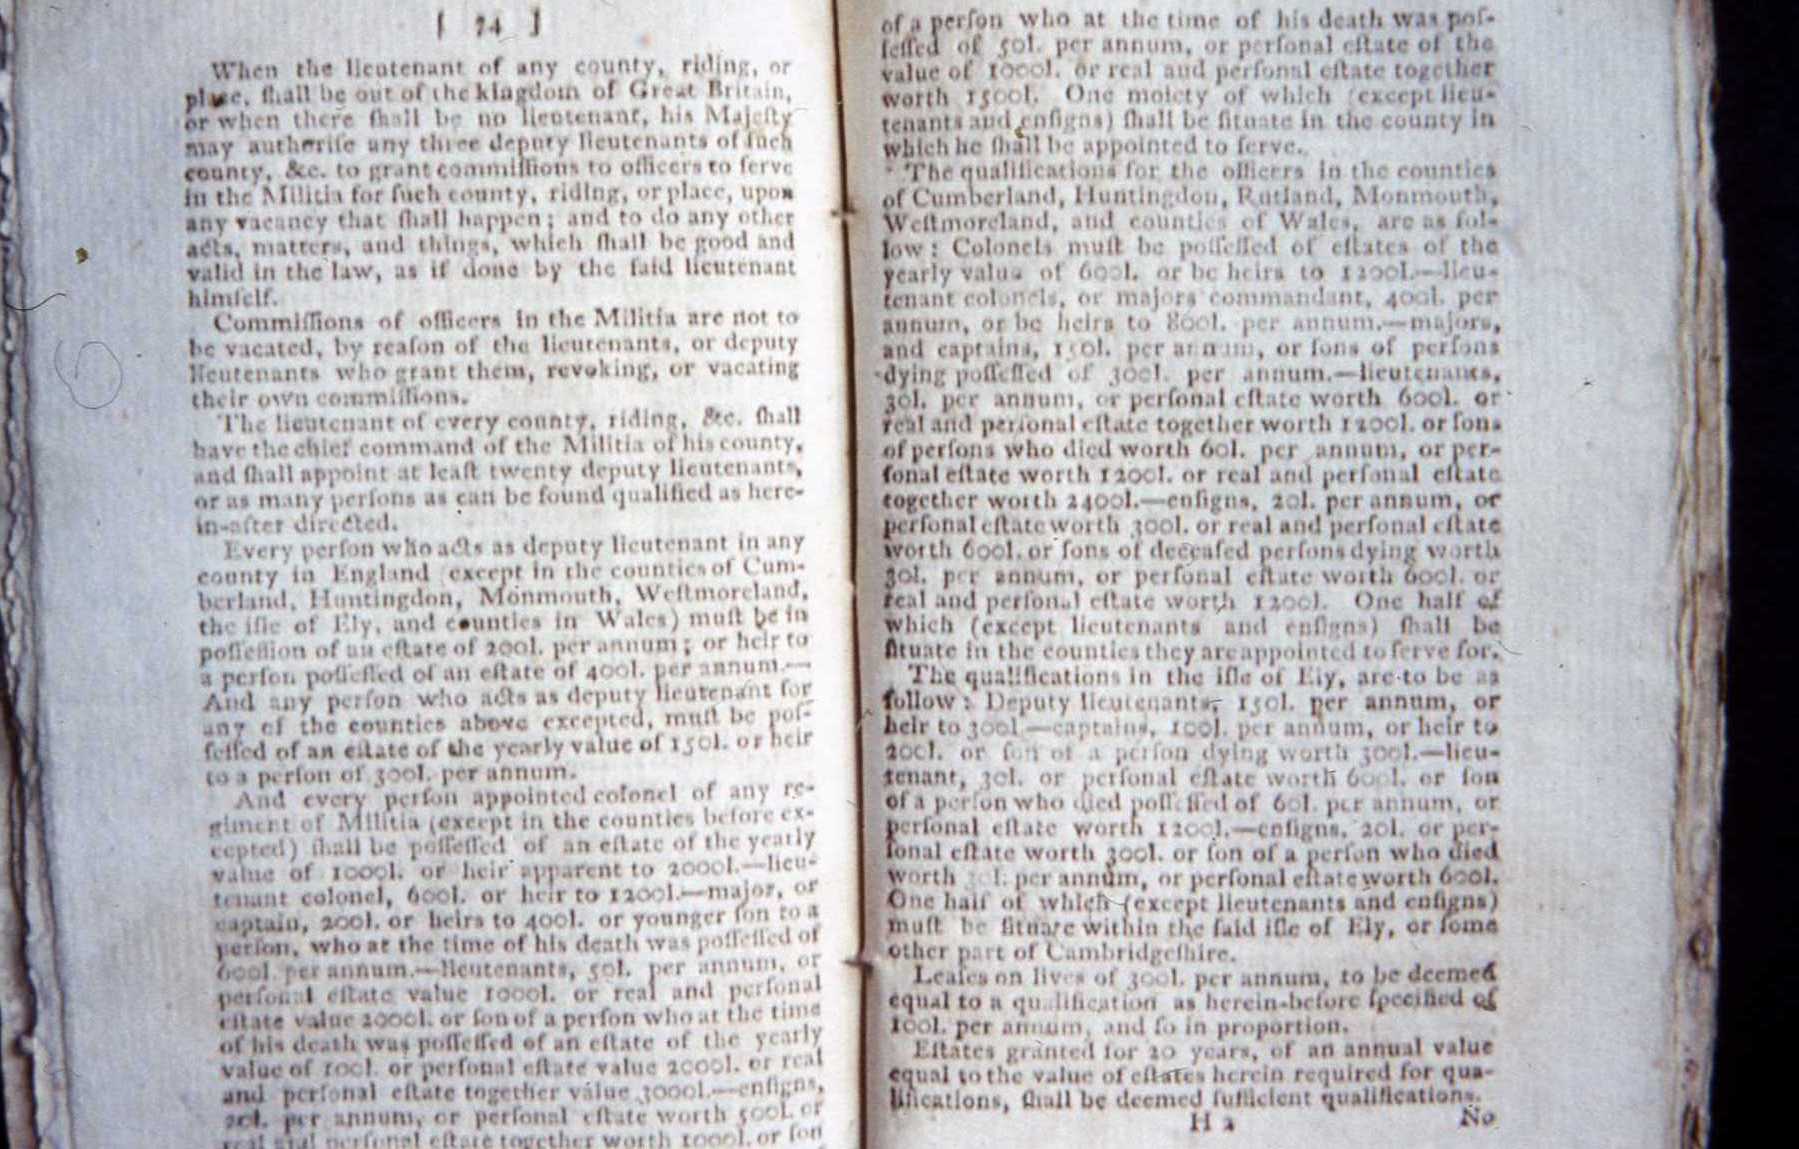 [ 74 ]
When the lieutenant of any county, riding, or
place, ſhall be out of the kingdom of Great Britain,
or when there ſhall be no lieutenant, his Majeſty
may authoriſe any three deputy lieutenants of ſuch
county, &c. to grant commiſſions to officers to ſerve
in the Militia for ſuch county, riding, or place, upon
any vacancy that ſhall happen; and to do any other
acts, matters, and things, which ſhall be good and
valid in the law, as if done by the ſaid lieutenant
himſelf.
Commiſſions of officers in the Militia are not to
be vacated, by reaſon of the lieutenants, or deputy
lieutenants who grant them, revoking, or vacating
their own commiſſions.
The lieutenant of every county, riding, &c. ſhall
have the chief command of the Militia of his county,
and ſhall appoint at leaſt twenty deputy lieutenants,
or as many perſons as can be found qualified as here-
in-after directed.
Every perſon who acts as deputy lieutenant in any
county in England (except in the counties of Cum-
berland, Huntingdon, Monmouth, Weſtmoreland,
the iſle of Ely, and counties in Wales) muſt be in
poſſeſſion of an eſtate of 200l. per annum; or heir to
a perſon poſſeſſed of an eſtate of 400l. per annum.—
And any perſon who acts as deputy lieutenant for
any of the counties above excepted, muſt be poſ-
ſeſſed of an eſtate of the yearly value of 150l. or heir
to a perſon of 300l. per annum.
And every perſon appointed colonel of any re-
giment of Militia (except in the counties before ex-
cepted) ſhall be poſſeſſed of an eſtate of the yearly
value of 1000l. or heir apparent to 2000l.—lieu-
tenant colonel, 600l. or heir to 1200l.—major, or
captain, 200l. or heirs to 400l. or younger ſon to a
perſon, who at the time of his death was poſſeſſed of
600l. per annum.—lieutenants, 50l. per annum, or
perſonal eſtate value 1000l. or real and perſonal
eſtate value 2000l. or ſon of a perſon who at the time
of his death was poſſeſſed of an eſtate of the yearly
value of 100l. or perſonal eſtate value 2000l. or real
and perſonal eſtate together value 3000l.—enſigns,
20l. per annum, or perſonal eſtate worth 500l. or
real and perſonal eſtate together worth 1000l. or ſon
of a perſon who at the time of his death was poſ-
ſeſſed of 50l. per annum, or perſonal eſtate of the
value of 1000l. or real and perſonal eſtate together
worth 1500l. One moiety of which (except lieu-
tenants and enſigns) ſhall be ſituate in the county in
which he ſhall be appointed to ſerve.
The qualifications for the officers in the counties
of Cumberland, Huntingdon, Rutland, Monmouth,
Weſtmoreland, and counties of Wales, are as fol-
low: Colonels muſt be poſſeſſed of eſtates of the
yearly value of 600l. or be heirs to 1200l.—lieu-
tenant colonels, or majors commandant, 400l. per
annum, or be heirs to 800l. per annum.—majors,
and captains, 150l. per annum, or ſons of perſons
dying poſſeſſed of 300l. per annum.—lieutenants,
30l. per annum, or perſonal eſtate worth 600l. or
real and perſonal eſtate together worth 1200l. or ſons
of perſons who died worth 60l. per annum, or per-
ſonal eſtate worth 1200l. or real and perſonal eſtate
together worth 2400l.—enſigns, 20l. per annum, or
perſonal eſtate worth 300l. or real and perſonal eſtate
worth 600l. or ſons of deceaſed perſons dying worth
30l. per annum, or perſonal eſtate worth 600l. or
real and perſonal eſtate worth 1200l. One half of
which (except lieutenants and enſigns) ſhall be
ſituate in the counties they are appointed to ſerve for.
The qualifications in the iſle of Ely, are to be as
follow: Deputy lieutenants, 150l. per annum, or
heir to 300l.—captains, 100l. per annum, or heir to
200l. or ſon of a perſon dying worth 300l.—lieu-
tenant, 30l. or perſonal eſtate worth 600l. or ſon
of a perſon who died poſſeſſed of 60l. per annum, or
perſonal eſtate worth 1200l.—enſigns, 20l. or per-
ſonal eſtate worth 300l. or ſon of a perſon who died
worth per annum, or perſonal eſtate worth 600l.
One half of which (except lieutenants and enſigns)
muſt be ſituate within the ſaid iſle of Ely, or ſome
other part of Cambridgeſhire.
Leaſes on lives of 300l. per annum, to be deemed
equal to a qualification as herein-before ſpecified of
100l. per annum, and ſo in proportion.
Eſtates granted for 20 years, of an annual value
equal to the value of eſtates herein required for qua-
lifications, ſhall be deemed ſufficient qualifications.
H 2 No